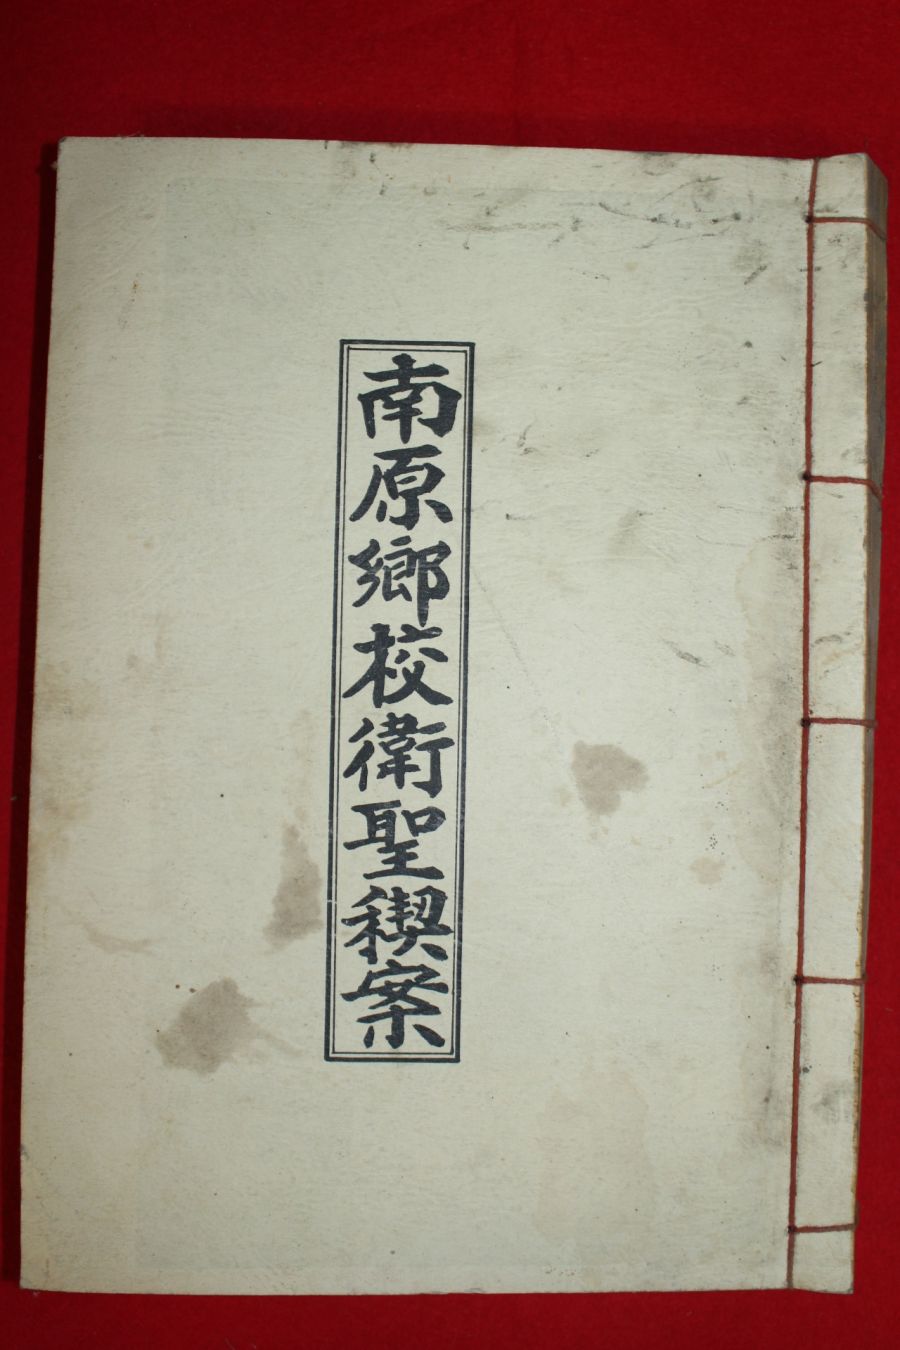 南原鄕校衛聖稧案